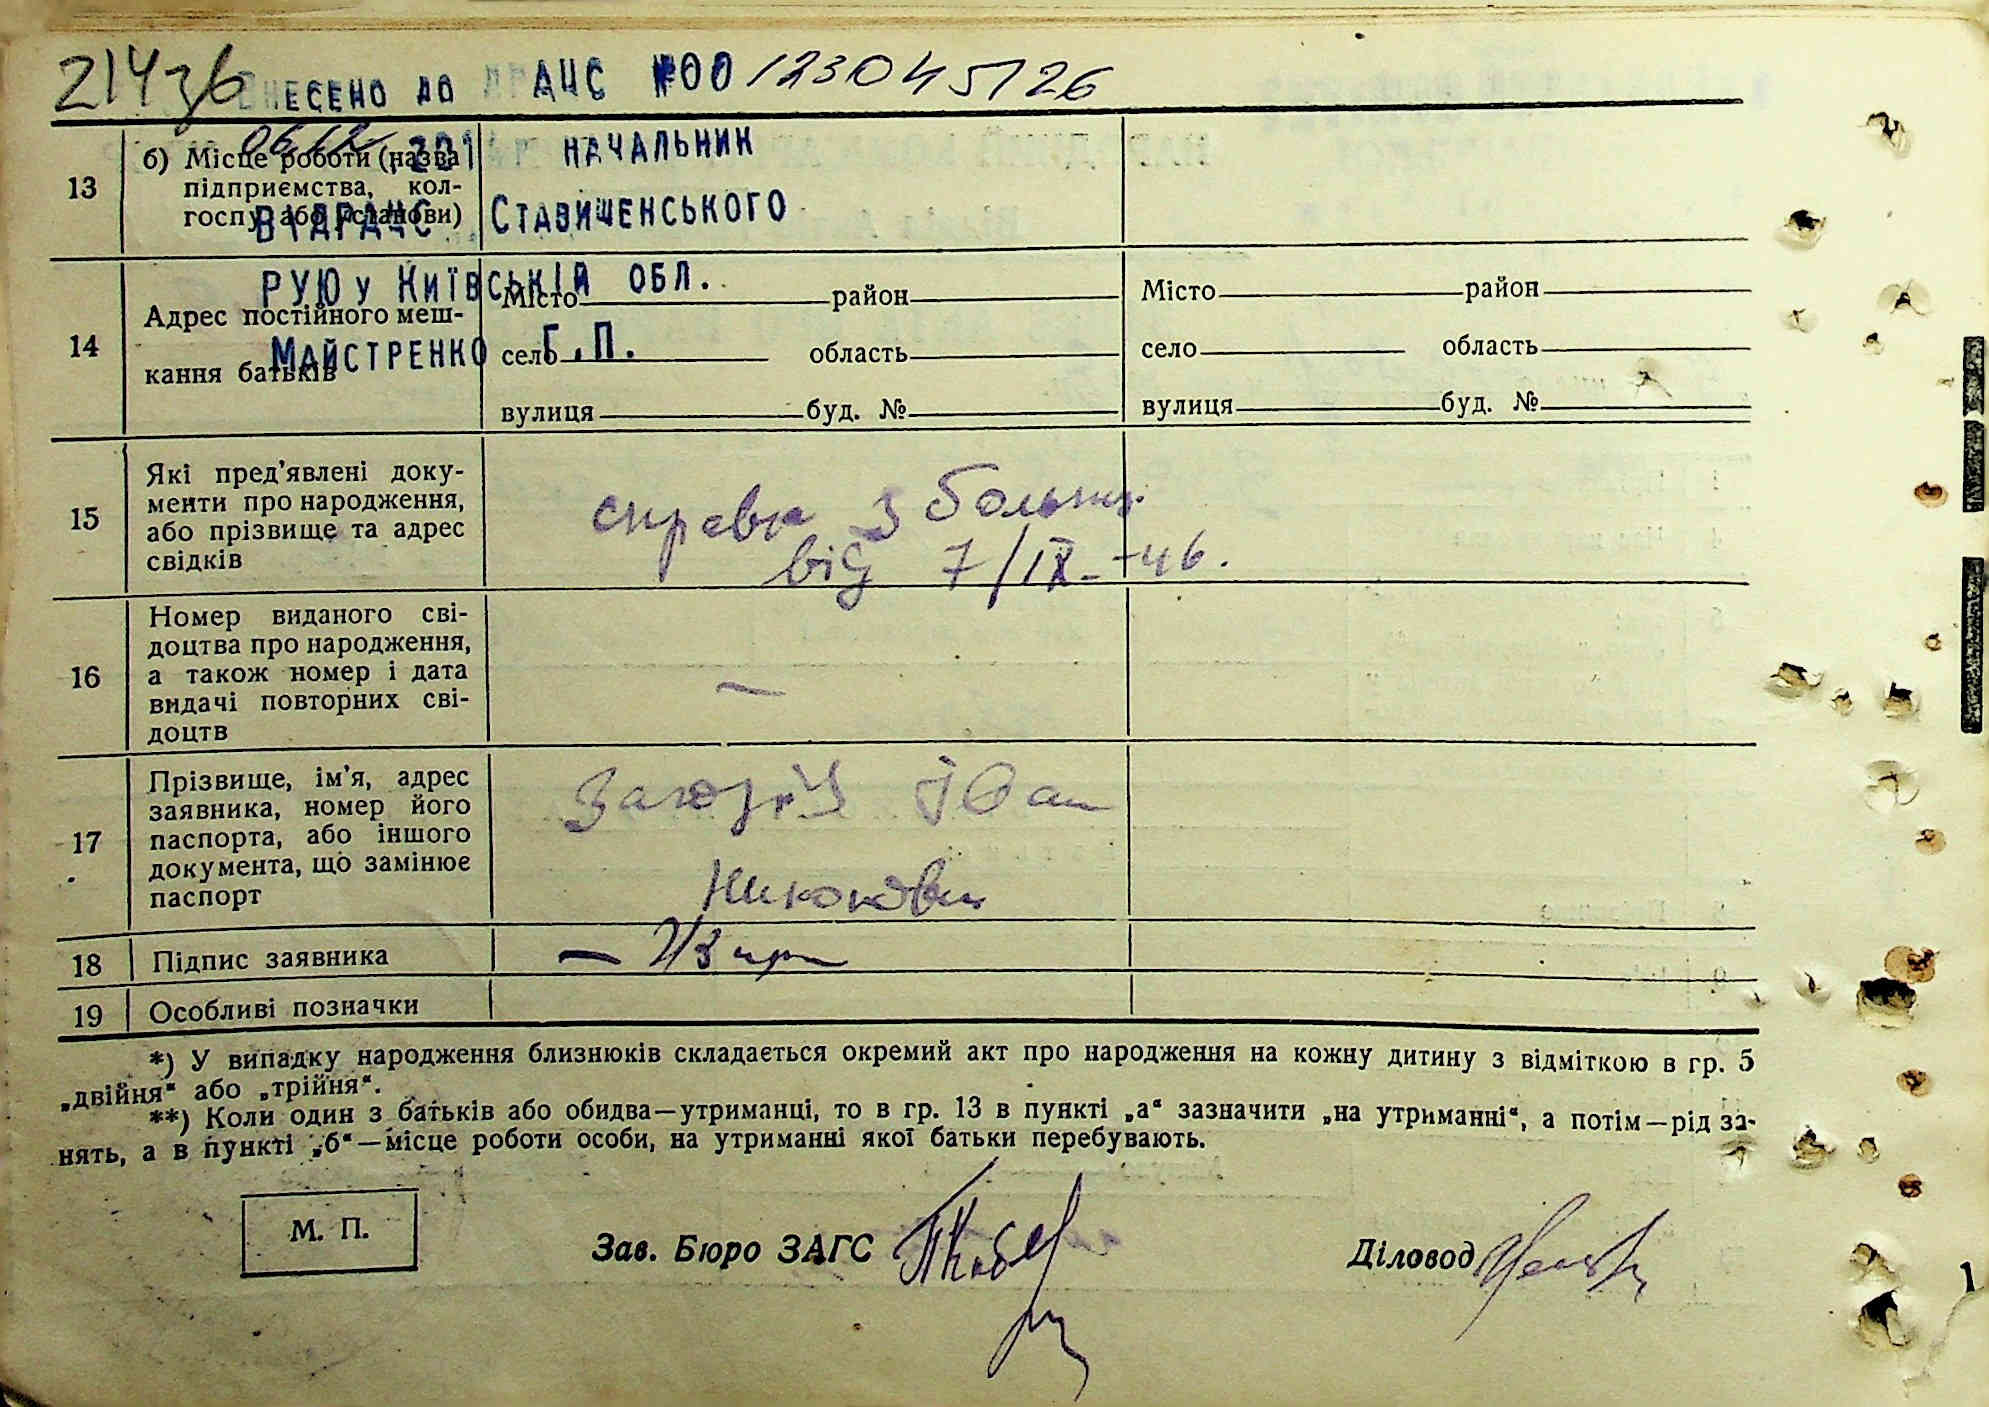 214зб ВНЕСЕНО ДО ДРАЦС №00123045126
06.12. 201 НАЧАЛЬНИК
ВІДРАЦС СТАВИЩЕНСЬКОГО
РУЮ У КИЇВСЬКІЙ ОБЛ.
МАЙСТРЕНКО Г.П.
13
б) Місце роботи (назва
підприємства, кол-
госпу або установи)
14
Адрес постійного меш-
кання батьків
Місто район
село область
вулиця буд. №
Місто район
село область
вулиця буд. №
15
Які пред’явлені доку-
менти про народження,
або прізвище та адрес
свідків
справка з больниц
від 7/IX-46.
16
Номер виданого сві-
доцтва про народження,
а також номер і дата
видачі повторних сві-
доцтв
—
17
Прізвище, ім’я, адрес
заявника, номер його
паспорта, або іншого
документа, що замінює
паспорт
Іван
18 Підпис заявника
19 Особливі позначки
*) У випадку народження близнюків складається окремий акт про народження на кожну дитину з відміткою в гр. 5
„двійня“ або „трійня“.
**) Коли один з батьків або обидва—утриманці, то в гр. 13 в пункті „а“ зазначити „на утриманні“, а потім—рід за-
нять, а в пункті „б“—місце роботи особи, на утриманні якої батьки перебувають.
М. П.
Зав. Бюро ЗАГС
Діловод
1